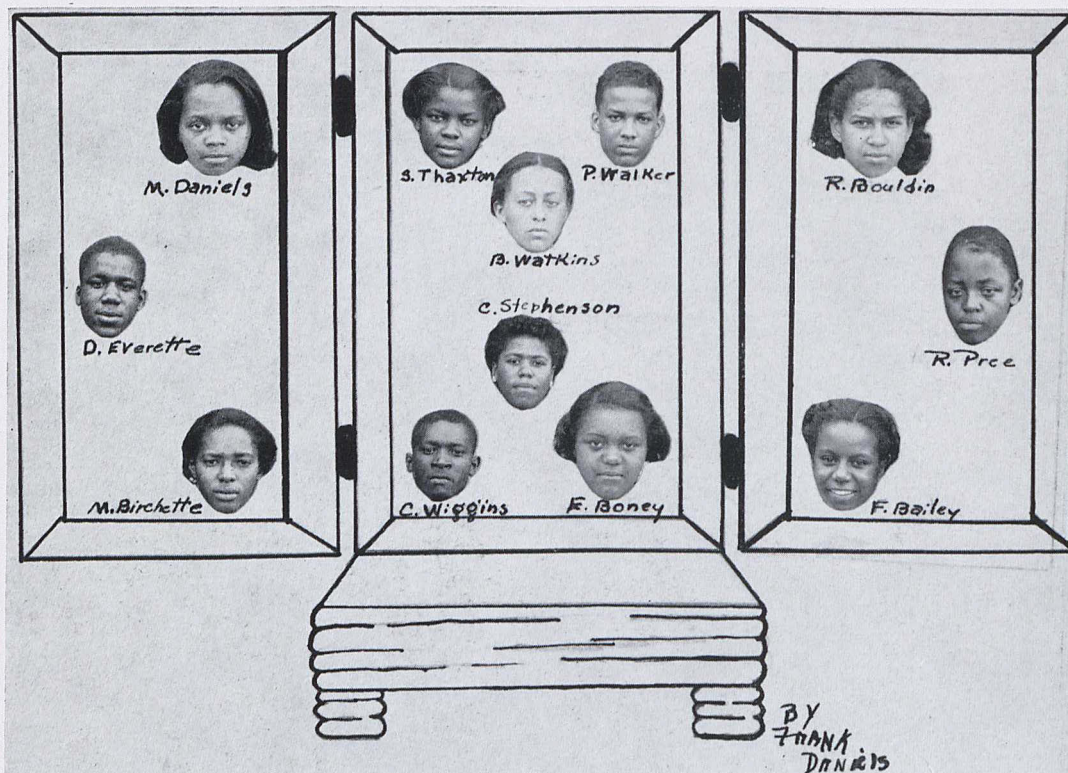 M. Daniels
D. Everette
M. Birchette
S. Thaxton
P. Walker
B. Watkins
C. Stephenson
C. Wiggins
E. Boney
R. Bouldin
R. Pree
F. Bailey
BY
FRANK
DANIELS